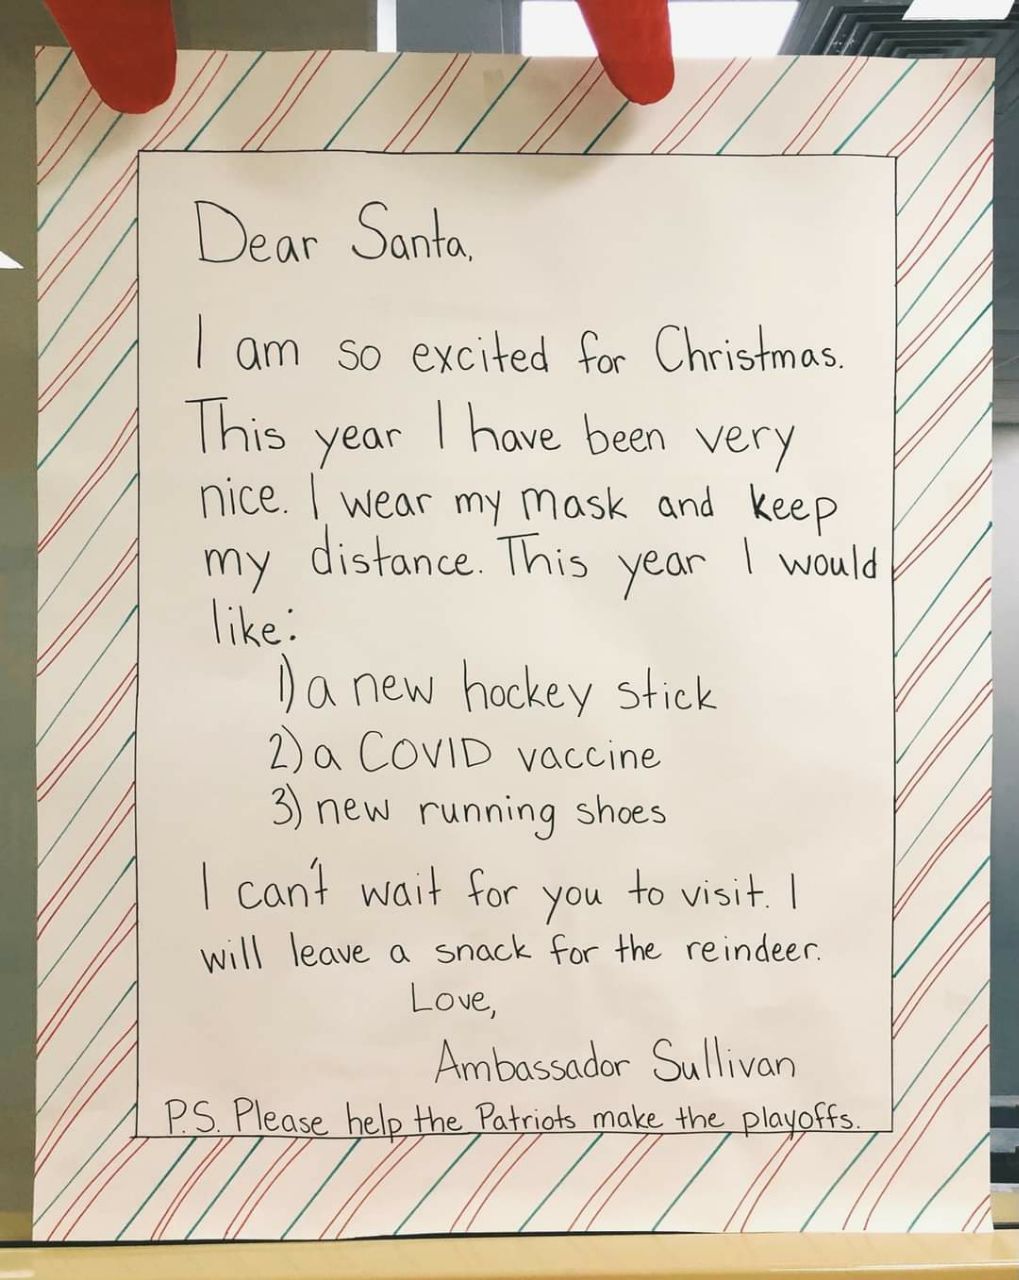 Dear Santa,
I am so excited for Christmas.
This year I have been very
nice. I wear my mask and keep
my distance. This year I would
like:
1) a new hockey stick
2) a COVID vaccine
3) new running shoes
I can't wait for you to visit. I
will leave a snack for the reindeer.
Love,
Ambassador Sullivan
P.S. Please help the Patriots make the playoffs.